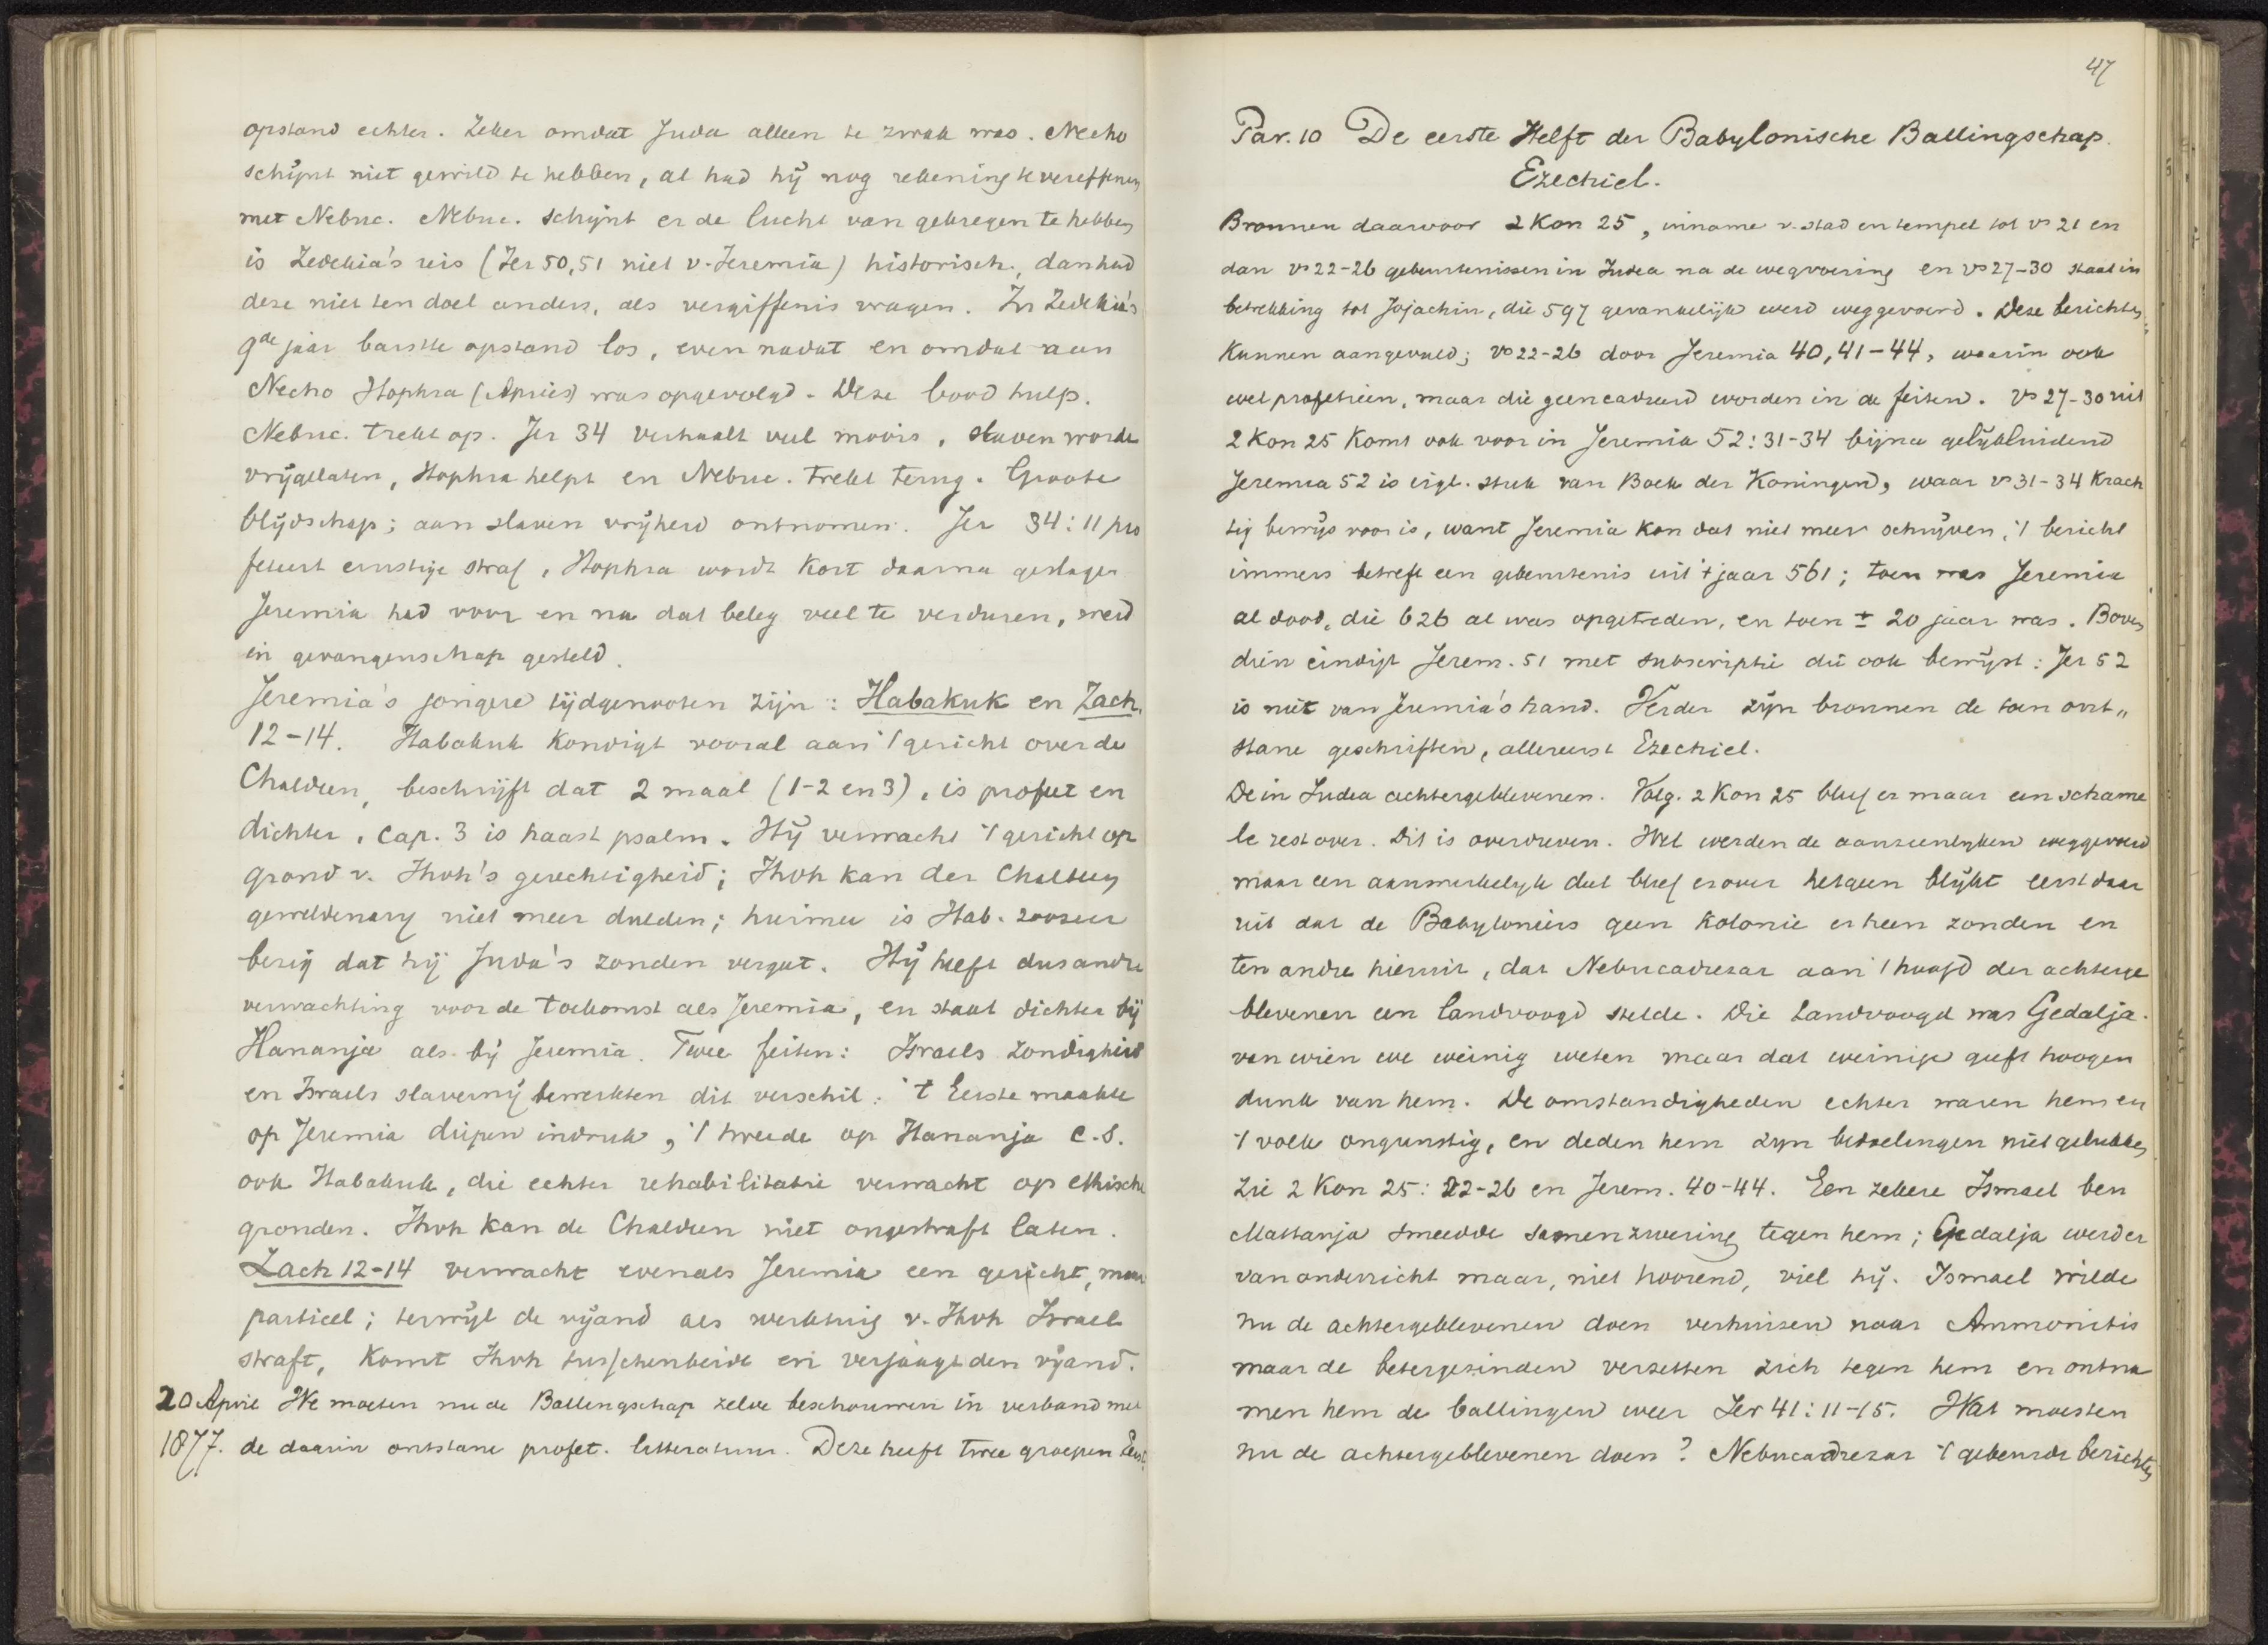 opstand echter. Zeker omdat Juda alleen te zwak was. Necho
schijnt niet gewild te hebben, al had hij nog rekening te vereffenen
met Nebuc. Nebuc. schijnt er de lucht van gekregen te hebben
is Zedekia's reis (Jer 50,51 niet v. Jeremia) historisch, dan had
deze niet ten doel anders, als vergiffenis vragen. In Zedekia's
9de jaar barstte opstand los, even nadat en omdat aan
Necho Hophra (Apriës) was opgevolgd. Deze bood hulp.
Nebuc. trekt op. Jer 34 verhaalt veel moois, slaven worde
vrijgelaten, Hophra helpt en Nebuc. trekt terug. Groote
blijdschap; aan slaven vrijheid ontnomen. Jer 34:11 pro
feteert ernstige straf, Hophra wordt kort daarna geslagen
Jeremia had voor en na dat beleg veel te verduren, werd
in gevangenschap gesteld.
Jeremia's jongere tijdgenooten zijn: Habakuk en Zach.
12-14. Habakuk kondigt vooral aan 't gericht over de
Chaldeen, beschrijft dat 2 maal (1-2 en 3), is profeet en
dichter, cap. 3 is haast psalm. Hij verwacht 't gericht op
grond v. Jhvh's gerechtigheid; Jhvh kan der Chaldeen
geweldenary niet meer dulden; hiermee is Hab. zoozeer
bezig dat hij Juda's zonden vergat. Hij heeft dus andre
verwachting voor de toekomst als Jeremia, en staat dichter bij
Hananja als bij Jeremia. Twee feiten: Israels zondigheid
en Israels slavernij bewerkten dit verschil: 't Eerste maakte
op Jeremia diepen indruk, 't tweede op Hananja c.s.
ook Habakuk, die echter rehabilitatie verwacht op ethische
gronden. Jhvh kan de Chaldeen niet ongestraft laten.
Zach 12-14 verwacht evenals Jeremia een gericht, maar
partieel; terwijl de vijand als werktuig v. Jhvh Israel
straft, komt Jhvh tusschenbeide en verjaagt den vijand.
20 April We moeten nu de Ballingschap zelve beschouwen in verband met
1877. de daarin ontstane profet. litteratuur. Deze heeft twee groepen Eerst
47
Par. 10 De eerste Helft der Babylonische Ballingschap.
Ezechiel.
Bronnen daarvoor 2 Kon 25, inname v. stad en tempel tot vs 21 en
dan vs 22-26 gebeurtenissen in Judea na de wegvoering en vs 27-30 staat in
betrekking tot Jojachin, die 597 gevankelijk werd weggevoerd. Deze berichten
kunnen aangevuld; vs 22-26 door Jeremia 40, 41-44, waarin ook
wel profetieën, maar die geencadreerd worden in de feiten. Vs 27-30 uit
2 Kon 25 komt ook voor in Jeremia 52:31-34 bijna gelijkluidend
Jeremia 52 is eigl. stuk van Boek der Koningen, waar vs 31-34 krach
tig bewijs voor is, want Jeremia kon dat niet meer schrijven, 't bericht
immers betreft een gebeurtenis uit 't jaar 561; toen was Jeremia
al dood, die 626 al was opgetreden, en toen ± 20 jaar was. Boven
dien eindigt Jerem. 51 met subscriptie die ook bewijst: Jer 52
is niet van Jeremia's hand. Verder zijn bronnen de toen ont„
stane geschriften, allereerst Ezechiel.
De in Judea achtergeblevenen. Volg. 2 Kon 25 bleef er maar een schame
le rest over. Dit is overdreven. Wel werden de aanzienlyken weggevoerd
maar een aanmerkelyk deel bleef er over hetgeen blijkt eerst daar
uit dat de Babyloniers geen kolonie erheen zonden en
ten andre hieruit, dat Nebucadrezar aan 't hoofd der achterge
blevenen een landvoogd stelde. Die landvoogd was Gedalja.
van wien we weinig weten maar dat weinige geeft hoogen
dunk van hem. De omstandigheden echter waren hem en
't volk ongunstig, en deden hem zyn bedoelingen niet gelukken
Zie 2 Kon 25: 22-26 en Jerem. 40-44. Een zekere Ismael ben
Mattanja smeedde samenzwering tegen hem; Gedalja werd er
van onderricht maar, niet hoorend, viel hij. Ismael wilde
nu de achtergeblevenen doen verhuizen naar Ammonitis
maar de betergezinden verzetten zich tegen hem en ontna
men hem de ballingen weer Jer 41:11-15. Wat moesten
nu de achtergeblevenen doen? Nebucadrezar 't gebeurde berichten